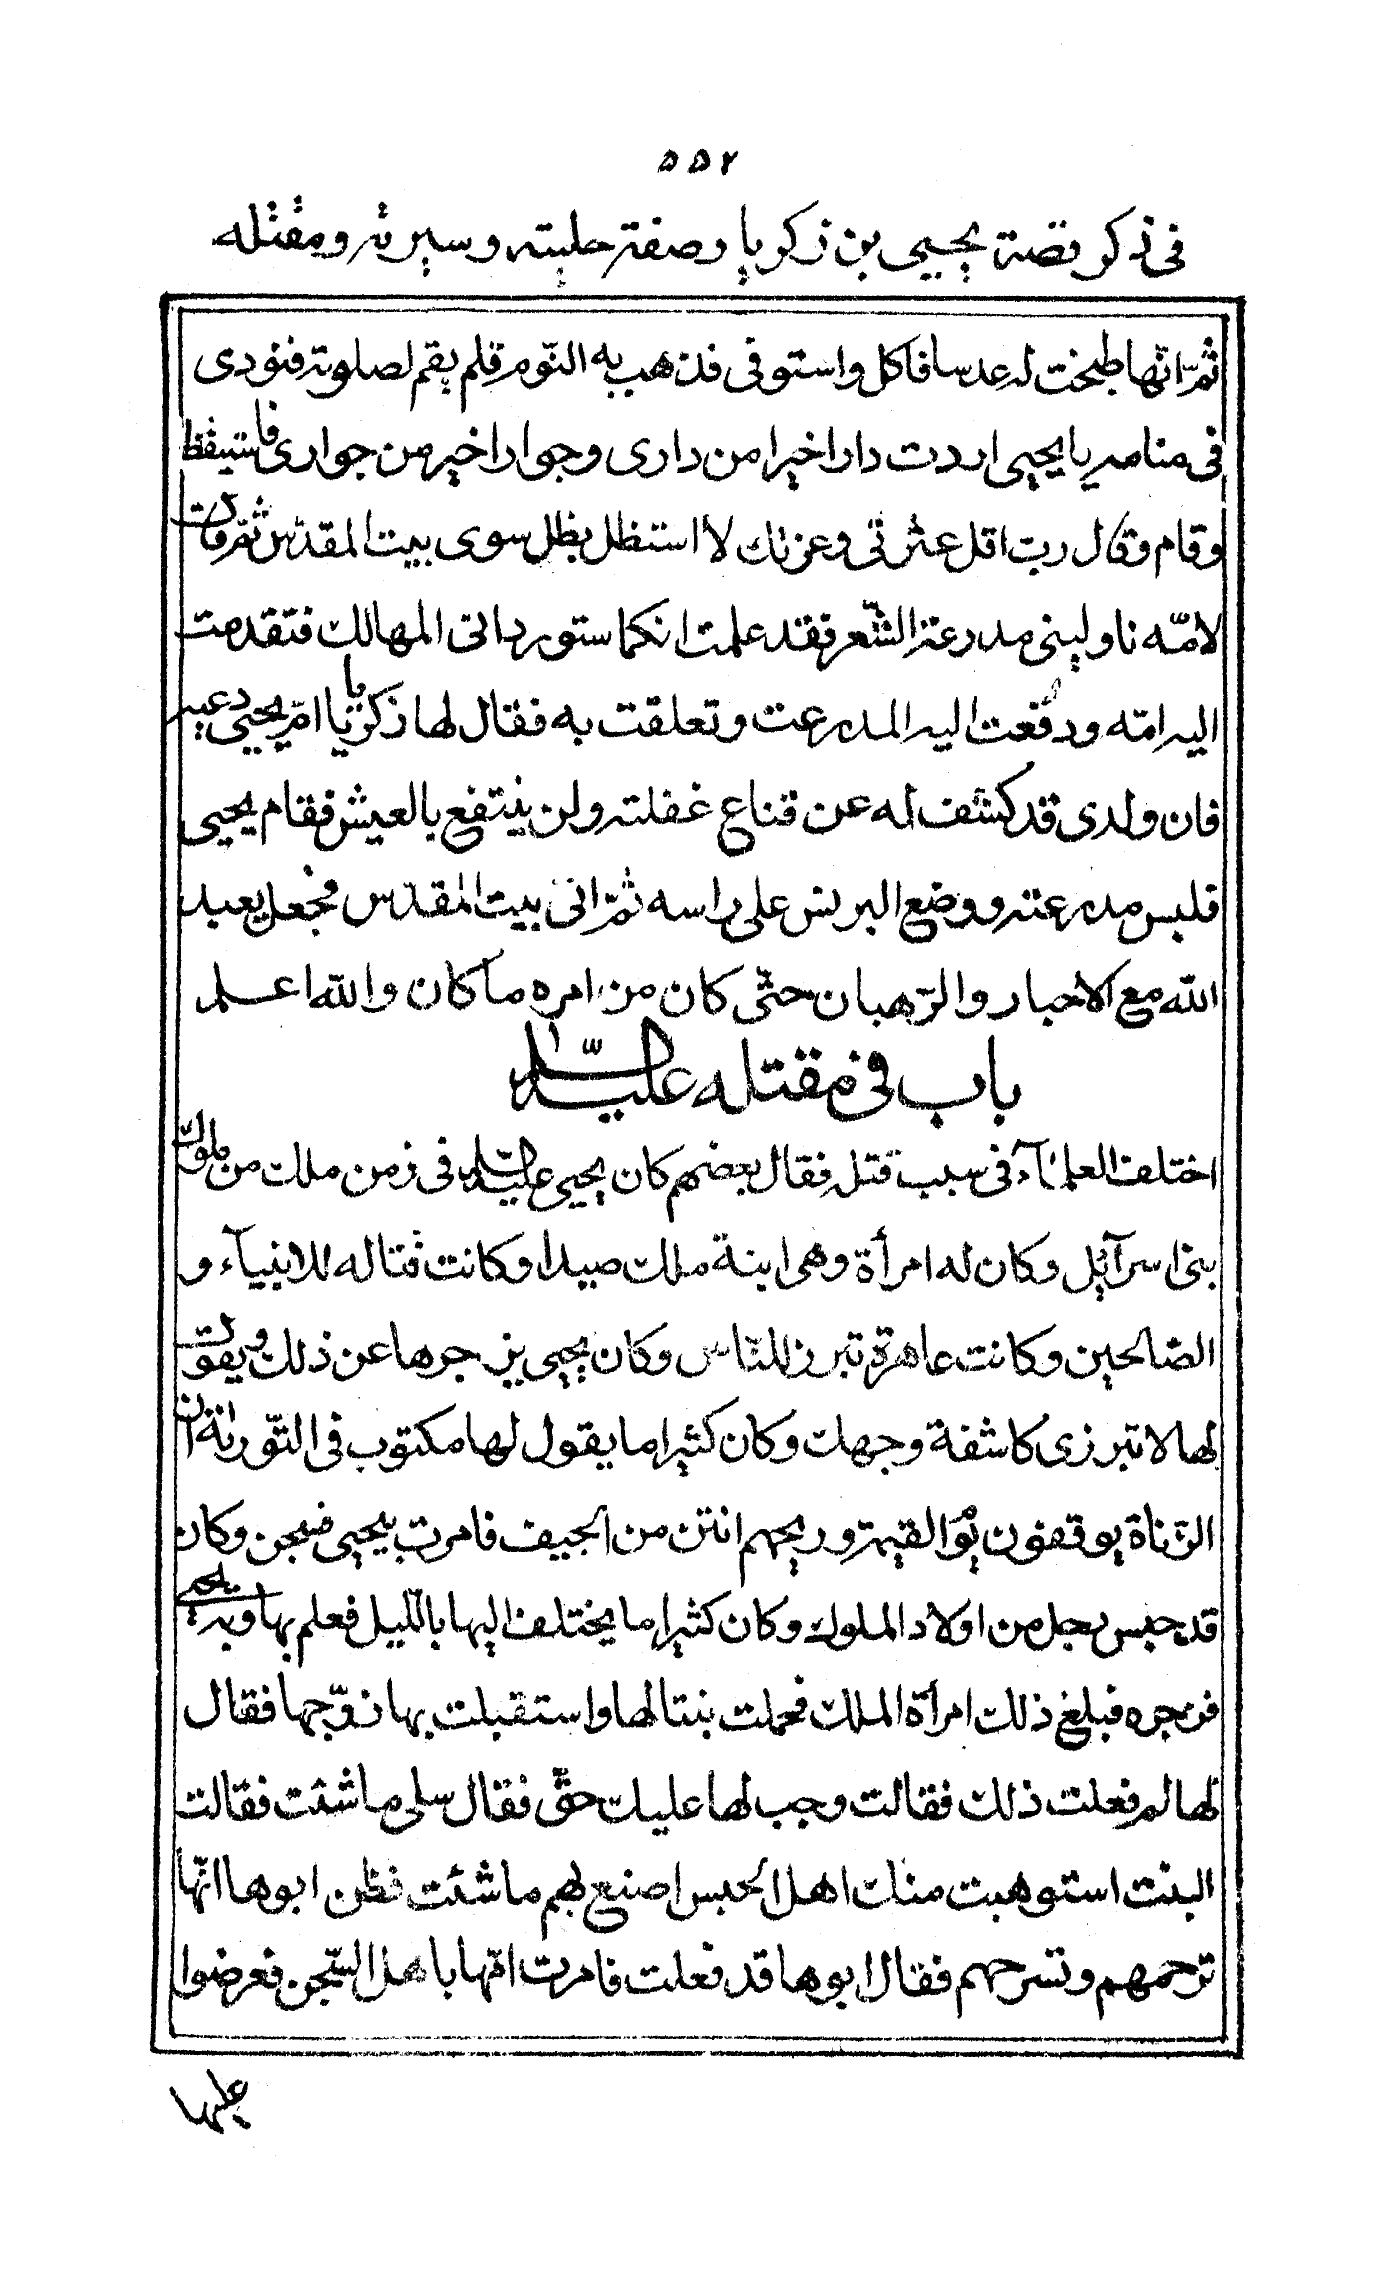 ٥٥٢
في ذكر قصة يحيى بن زكريا وصفة حليته وسيرته ومقتله
ثمّ انّها طبخت له عدسا فاكل واستوفى فذهب به النّوم فلم يقم لصلوته فنودى
فى منامه يا يحيى اردت دارا خيرا من دارى وجوارا خير من جوارى فاستيقظ
وقام وقال رب اقل عثرتى وعزتك لا استظل بظل سوى بيت المقدّس ثم قال
لامّه ناولينى مدرعة الشّعر فقد علمت انكما ستورداني المهالك فتقدمت
اليه امّه ودفعت اليه المدرعت وتعلقت به فقال لها زكريا يا امّ يحيى دعيه
فان ولدى قد كشف له عن قناع غفلته ولن ينتفع بالعيش فقام يحيى
فلبس مدرعته ووضع البرنس على راسه ثمّ اتى بيت المقدّس فجعل يعبد
اللّه مع الاحبار والرّهبان حتّى كان من امره ما كان واللّه اعلم
باب في مقتله عليه السّلام
اختلف العلمآء فى سبب قتله فقال بعضهم كان يحيى عليه السّلام فى زمن ملك من ملوك
بنى اسرآئيل وكان له امرأة وهى ابنة ملك صيدا وكانت قتاله للانبيآء و
الصّالحين وكانت عاهرة تبرز للنّاس وكان يحيى يزجرها عن ذلك ويقول
لها لا تبرزى كاشفة وجهك وكان كثيرا ما يقول لها مكتوب فى التّورية ان
الزّناة يوقفون يوم القيمة وريحهم انتن من الجيف فامرت بيحيى فسجن وكان
قد حبس رجل من اولاد الملوك وكان كثيرا ما يختلف اليها بالّليل فعلم بها وبه يحيى
فزجره فبلغ ذلك امرأة الملك فحملت بنتا لها واستقبلت بها زوّجها فقال
لها لم فعلت ذلك فقالت وجب لها عليك حقّ فقال سلى ما شئت فقالت
البنت استوهبت منك اهل الحبس اصنع بهم ما شئت فظن ابوها انّها
ترحمهم وتسرحهم فقال ابوها قد فعلت فامرت امّها باهل السّجن فعرضوا
عليها